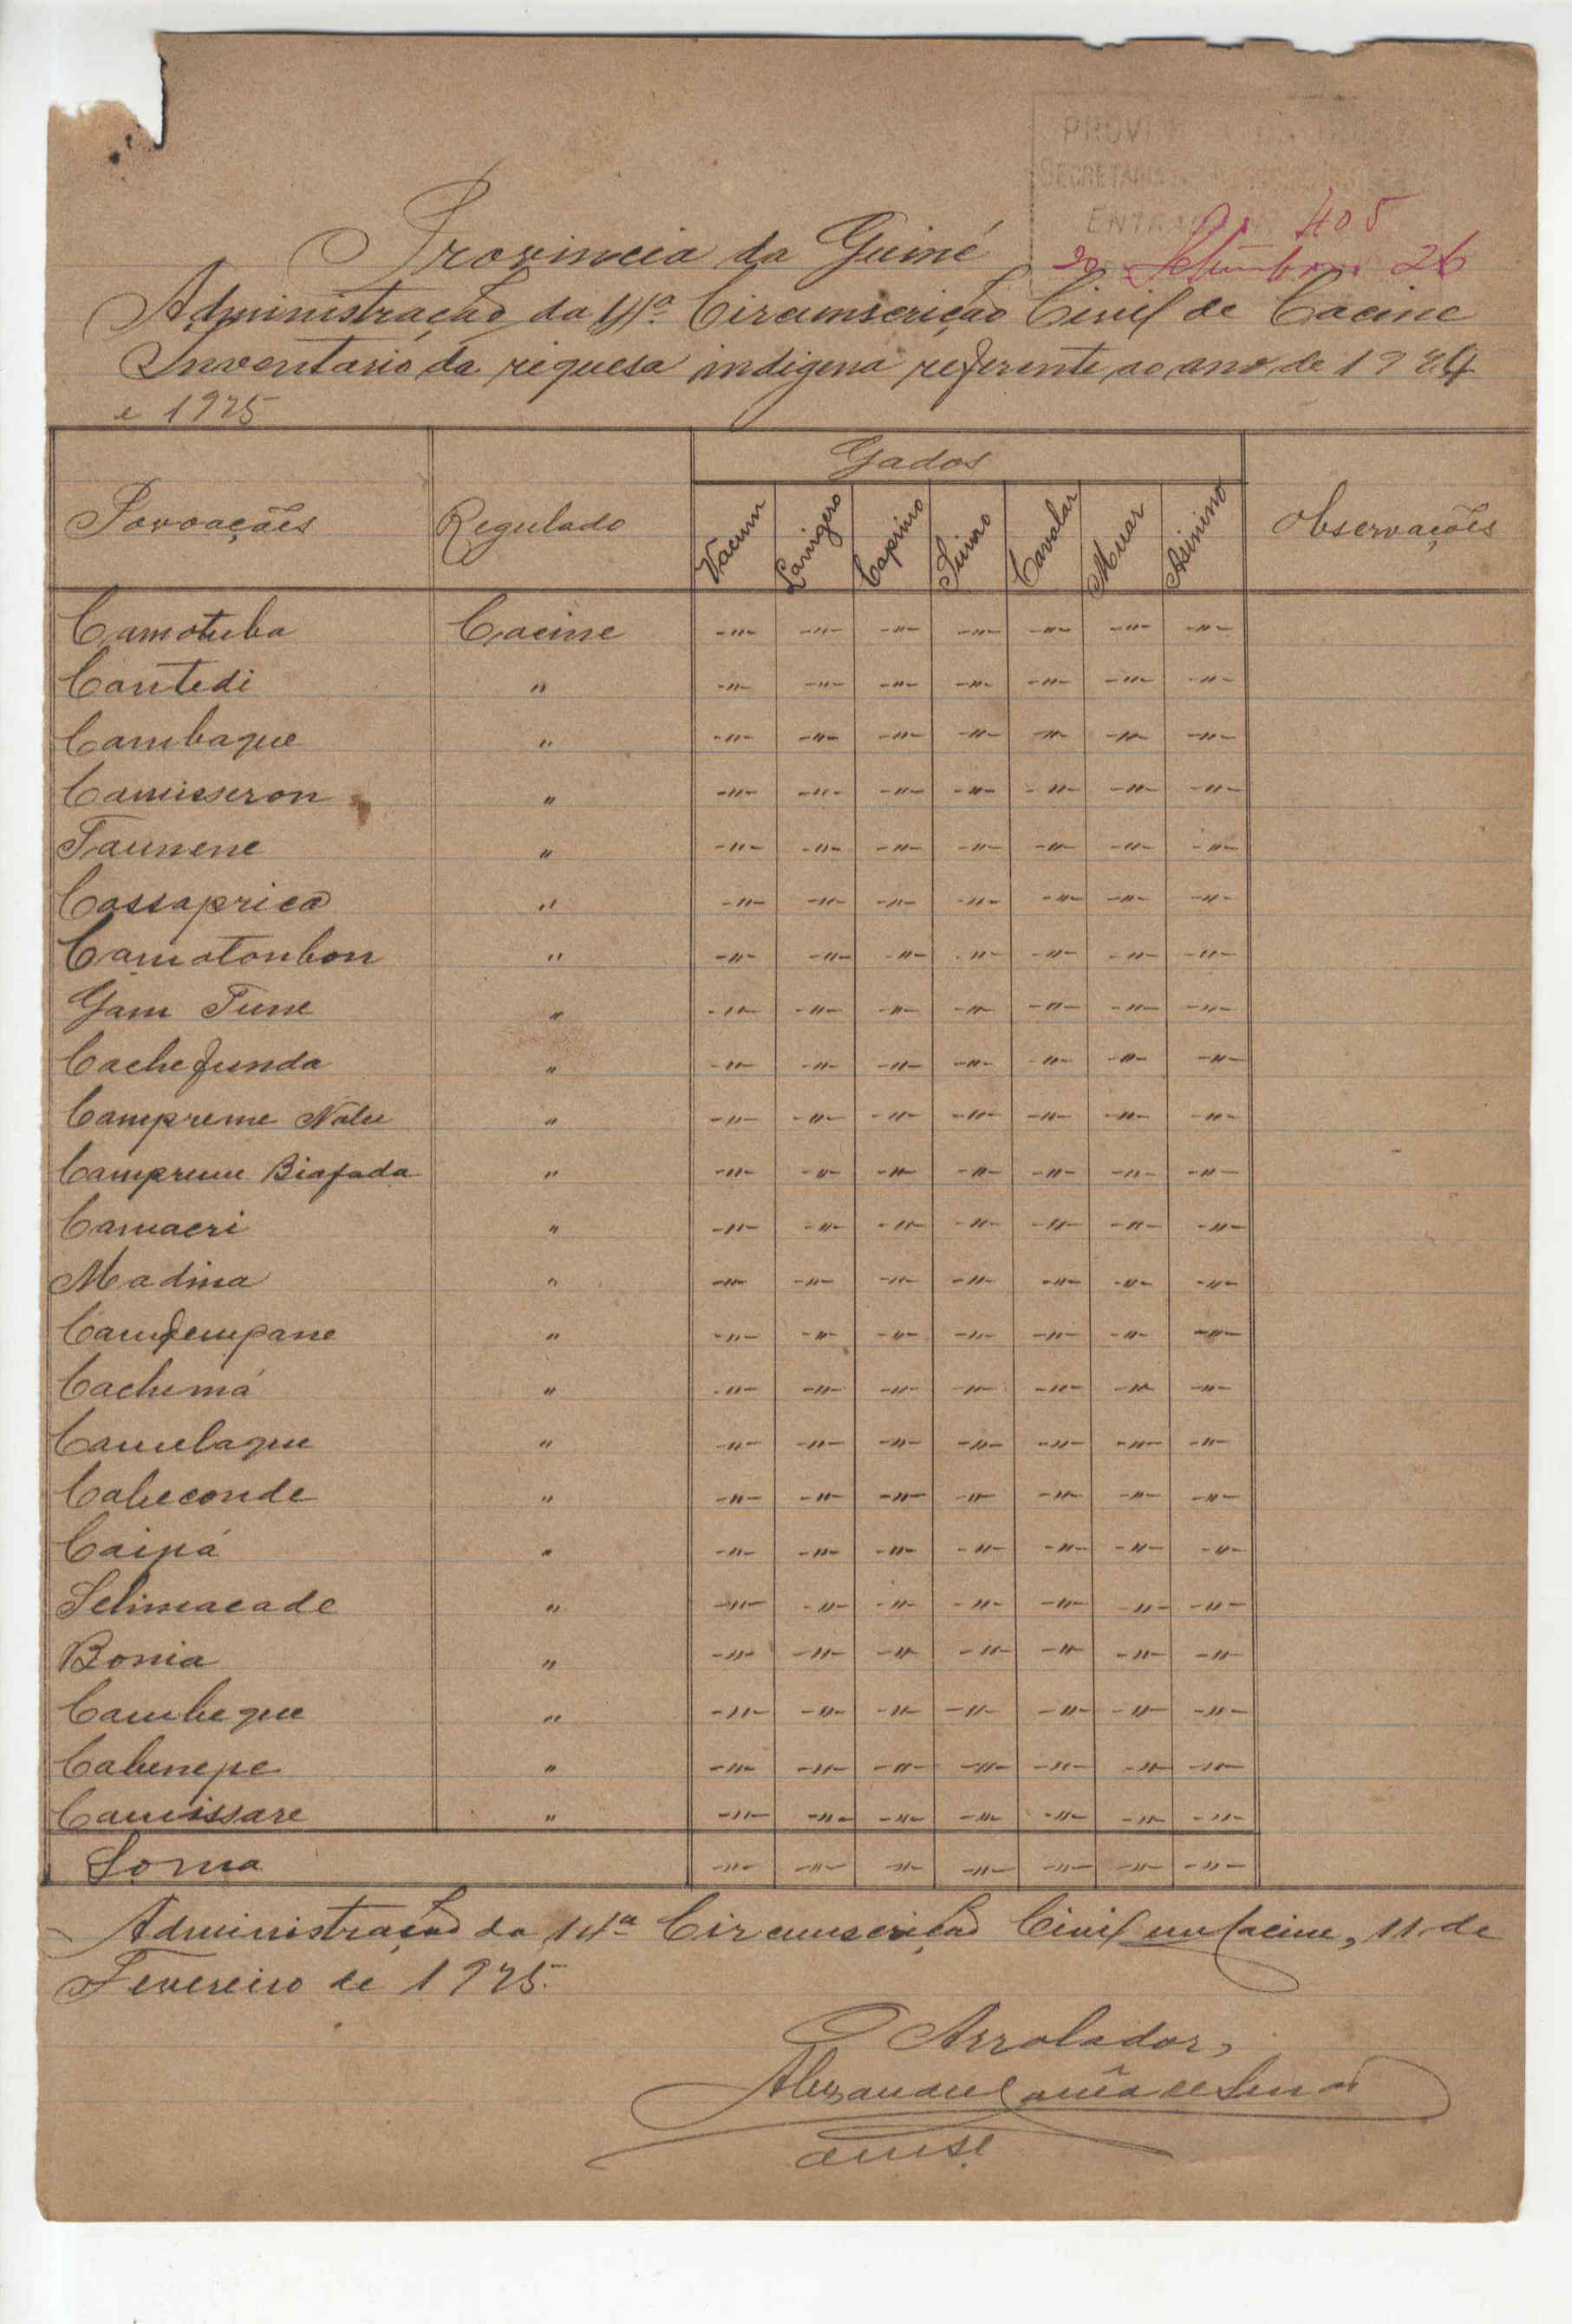 PROVI
SECRETARIA
ENTRA
Nº 405
20 Setembro 26
Provincia da Guiné
Administração da 14ª Circumscrição Civil de Cacine
Inventario da riquesa indigena referente ao ano de 1924
e 1925
Povoações Regulado Gados Observações
Vacum Lanigero Caprino Suino Cavalar Muar Asinino
Camotuba Cacine -"- -"- -"- -"- -"- -"- -"-
Cantedi " -"- -"- -"- -"- -"- -"- -"-
Cambaque " -"- -"- -"- -"- -"- -"- -"-
Camisseron " -"- -"- -"- -"- -"- -"- -"-
Taunene " -"- -"- -"- -"- -"- -"- -"-
Cassaprica " -"- -"- -"- -"- -"- -"- -"-
Camotonbon " -"- -"- -"- -"- -"- -"- -"-
Gam Tune " -"- -"- -"- -"- -"- -"- -"-
Cachefunda " -"- -"- -"- -"- -"- -"- -"-
Campreme Nalu " -"- -"- -"- -"- -"- -"- -"-
Campreme Biafada " -"- -"- -"- -"- -"- -"- -"-
Camacri " -"- -"- -"- -"- -"- -"- -"-
Madina " -"- -"- -"- -"- -"- -"- -"-
Camfempane " -"- -"- -"- -"- -"- -"- -"-
Cachimá " -"- -"- -"- -"- -"- -"- -"-
Camelaque " -"- -"- -"- -"- -"- -"- -"-
Cabeconde " -"- -"- -"- -"- -"- -"- -"-
Caipá " -"- -"- -"- -"- -"- -"- -"-
Selimacade " -"- -"- -"- -"- -"- -"- -"-
Bonia " -"- -"- -"- -"- -"- -"- -"-
Cambeque " -"- -"- -"- -"- -"- -"- -"-
Cabenepe " -"- -"- -"- -"- -"- -"- -"-
Camissare " -"- -"- -"- -"- -"- -"- -"-
Soma -"- -"- -"- -"- -"- -"- -"-
Administração da 14ª Circumscrição Civil em Cacine, 11 de
Fevereiro de 1925.
O Arrolador,
Alexandre de